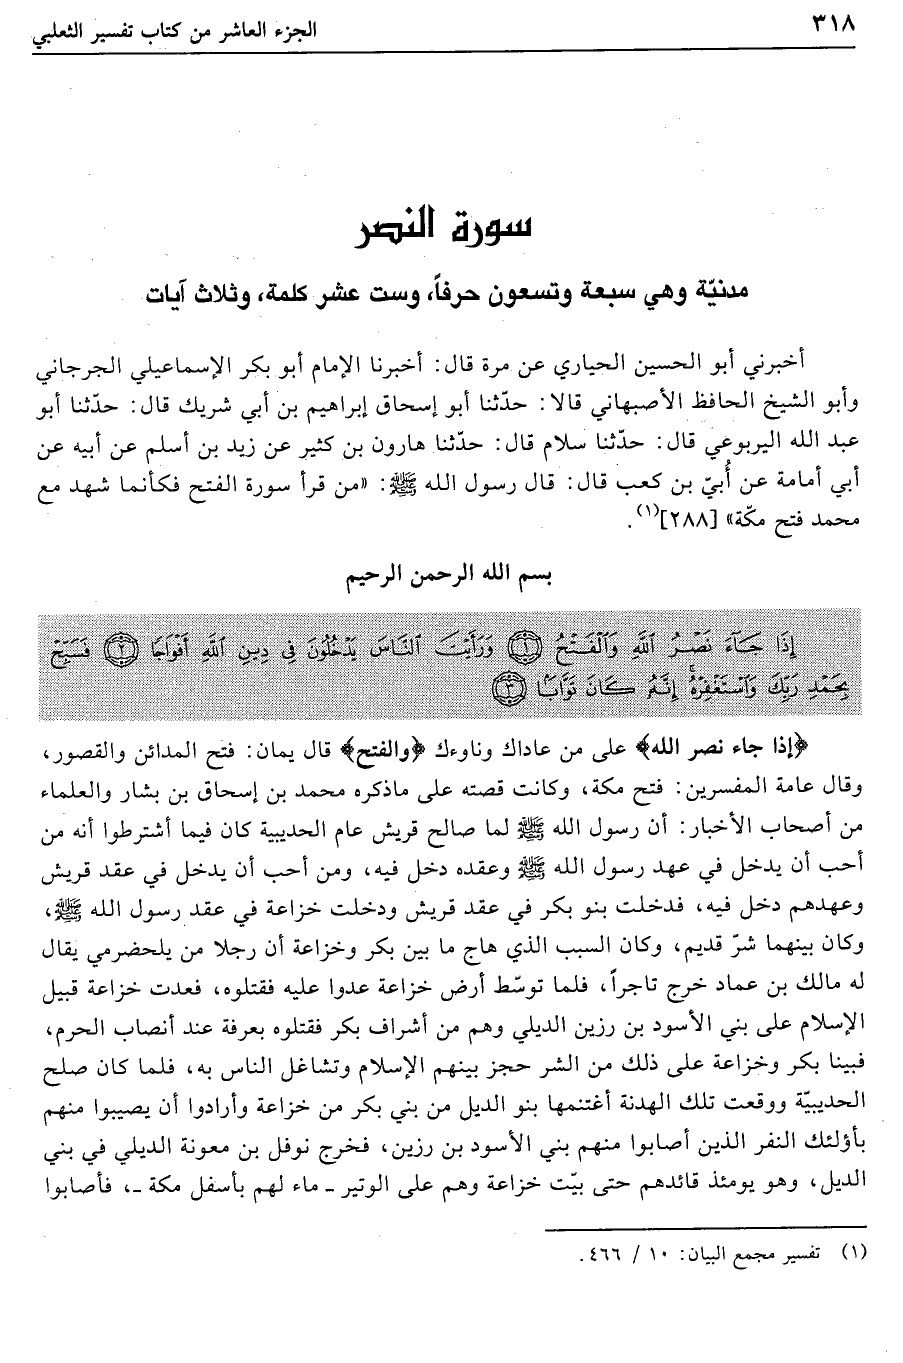 ٣١٨
الجزء العاشر من كتاب تفسير الثعلبي
سورة النصر
مدنيّة وهي سبعة وتسعون حرفاً، وست عشر كلمة، وثلاث آيات
أخبرني أبو الحسين الحياري عن مرة قال: أخبرنا الإمام أبو بكر الإسماعيلي الجرجاني
وأبو الشيخ الحافظ الأصبهاني قالا: حدّثنا أبو إسحاق إبراهيم بن أبي شريك قال: حدّثنا أبو
عبد الله اليربوعي قال: حدّثنا سلام قال: حدّثنا هارون بن كثير عن زيد بن أسلم عن أبيه عن
أبي أمامة عن أُبيّ بن كعب قال: قال رسول الله ﷺ: «من قرأ سورة الفتح فكأنما شهد مع
محمد فتح مكّة» [٢٨٨](١).
بسم الله الرحمن الرحيم
إِذَا جَآءَ نَصْرُ ٱللَّهِ وَٱلْفَتْحُ ﴿١﴾ وَرَأَيْتَ ٱلنَّاسَ يَدْخُلُونَ فِى دِينِ ٱللَّهِ أَفْوَاجًا ﴿٢﴾ فَسَبِّحْ
بِحَمْدِ رَبِّكَ وَٱسْتَغْفِرْهُ ۚ إِنَّهُۥ كَانَ تَوَّابًۢا ﴿٣﴾
﴿إذا جاء نصر الله﴾ على من عاداك وناوءك ﴿والفتح﴾ قال يمان: فتح المدائن والقصور،
وقال عامة المفسرين: فتح مكة، وكانت قصته على ماذكره محمد بن إسحاق بن بشار والعلماء
من أصحاب الأخبار: أن رسول الله ﷺ لما صالح قريش عام الحديبية كان فيما أشترطوا أنه من
أحب أن يدخل في عهد رسول الله ﷺ وعقده دخل فيه، ومن أحب أن يدخل في عقد قريش
وعهدهم دخل فيه، فدخلت بنو بكر في عقد قريش ودخلت خزاعة في عقد رسول الله ﷺ،
وكان بينهما شرّ قديم، وكان السبب الذي هاج ما بين بكر وخزاعة أن رجلا من يلحضرمي يقال
له مالك بن عماد خرج تاجراً، فلما توسّط أرض خزاعة عدوا عليه فقتلوه، فعدت خزاعة قبيل
الإسلام على بني الأسود بن رزين الديلي وهم من أشراف بكر فقتلوه بعرفة عند أنصاب الحرم،
فبينا بكر وخزاعة على ذلك من الشر حجز بينهم الإسلام وتشاغل الناس به، فلما كان صلح
الحديبيّة ووقعت تلك الهدنة أغتنمها بنو الديل من بني بكر من خزاعة وأرادوا أن يصيبوا منهم
بأؤلئك النفر الذين أصابوا منهم بني الأسود بن رزين، فخرج نوفل بن معونة الديلي في بني
الديل، وهو يومئذ قائدهم حتى بيّت خزاعة وهم على الوتير ـ ماء لهم بأسفل مكة ـ، فأصابوا
(١) تفسير مجمع البيان: ١٠ / ٤٦٦.